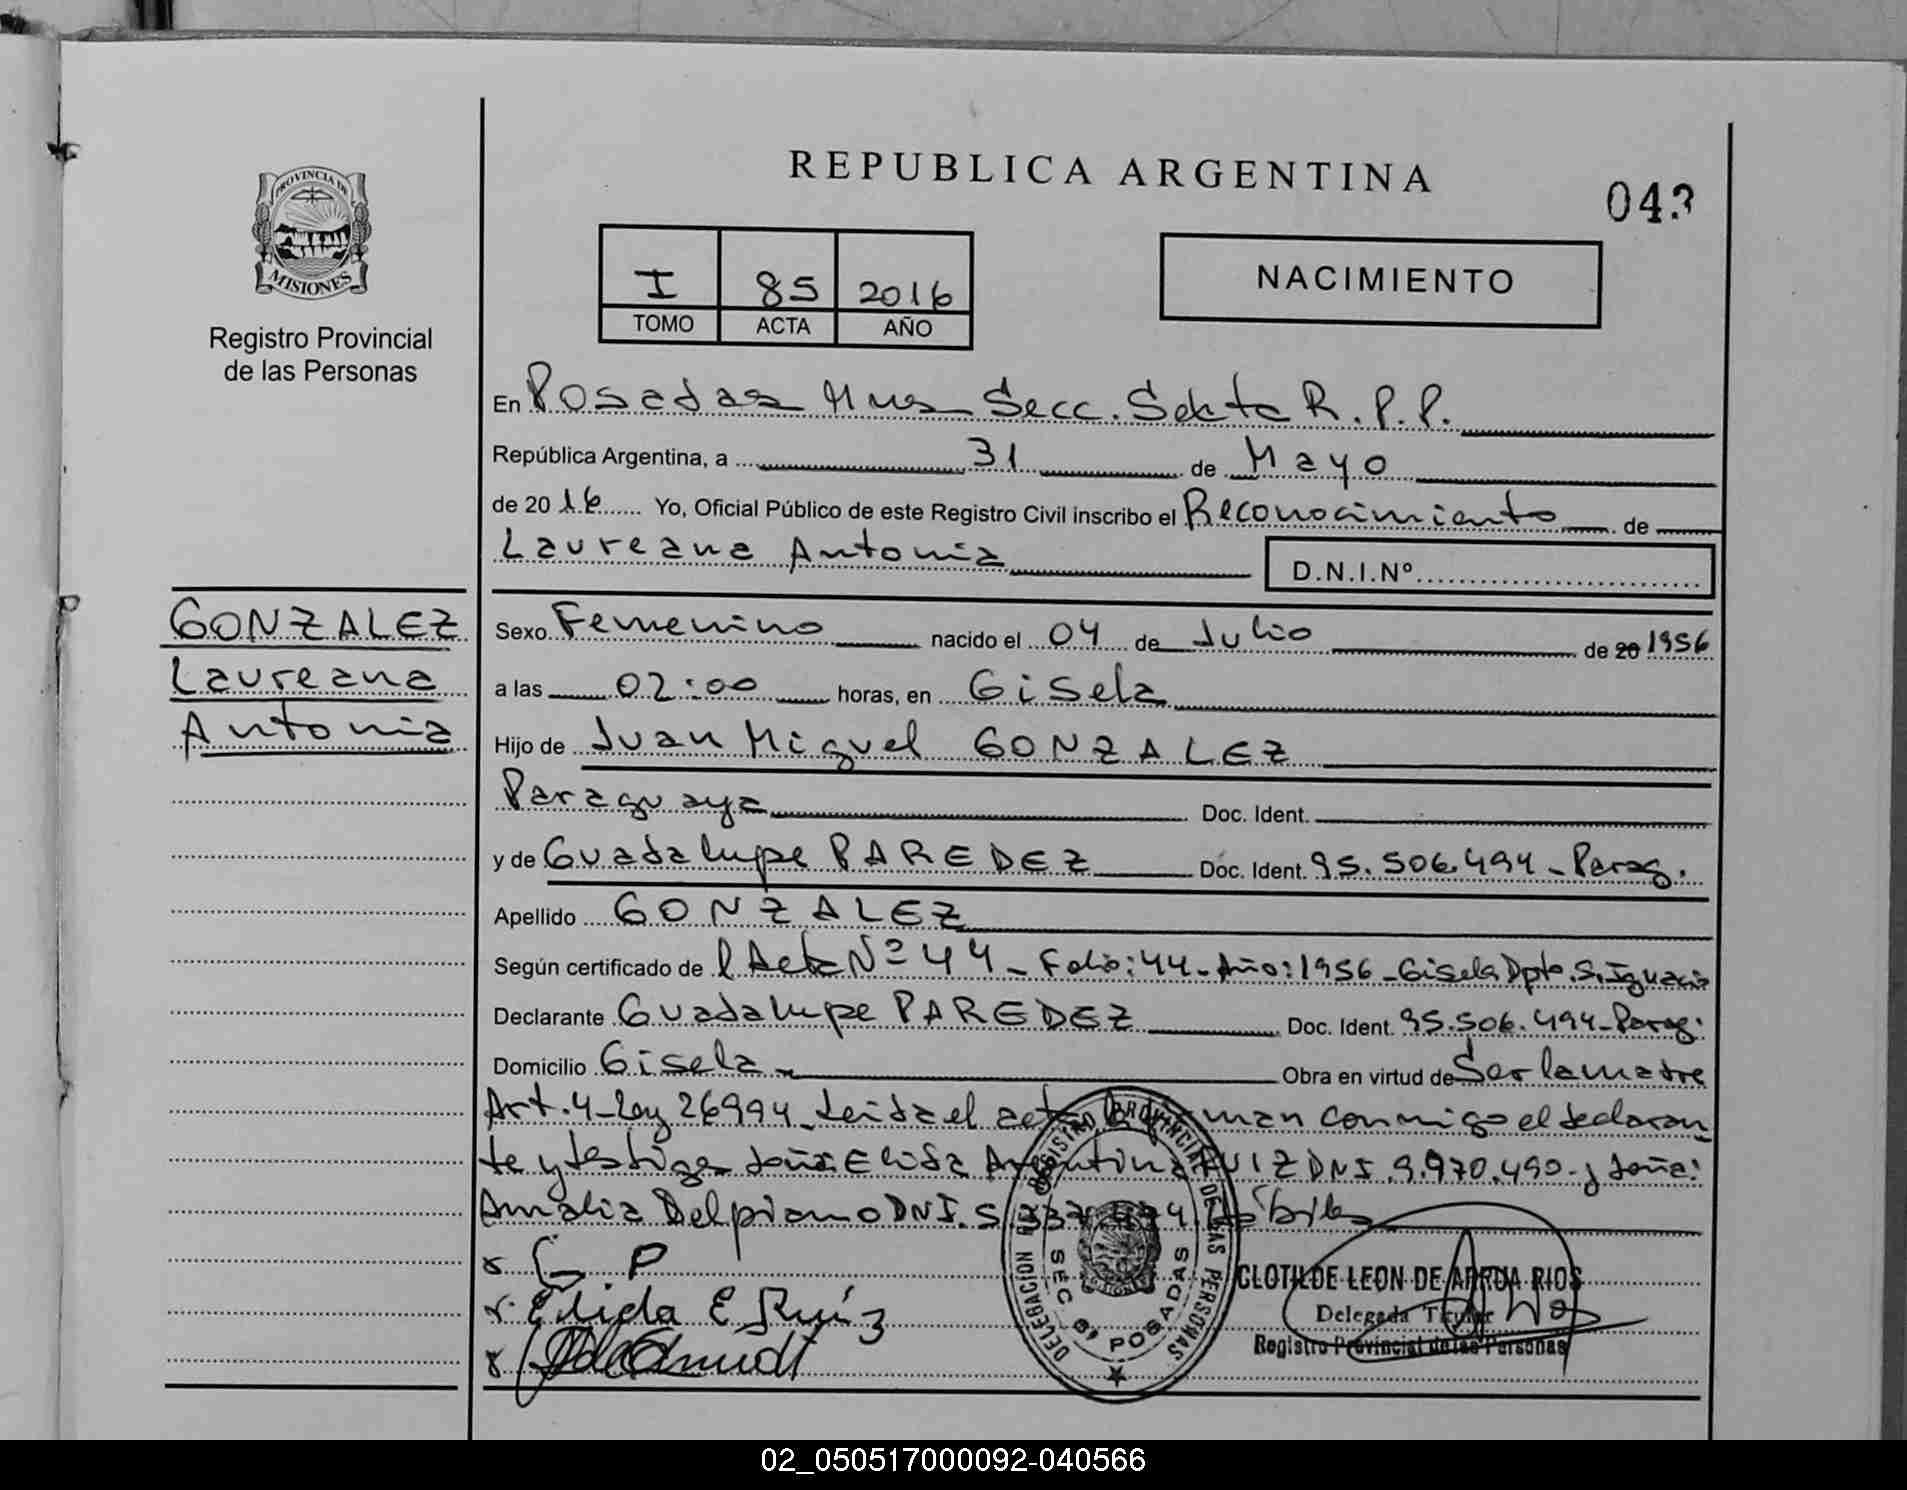 REPUBLICA ARGENTINA
043
PROVINCIA DE
MISIONES
Registro Provincial
de las Personas
I 85 2016
TOMO ACTA AÑO
NACIMIENTO
En Posadas Mnes Secc. Sexta R.P.P.
República Argentina, a 31 de Mayo
de 2016 Yo, Oficial Público de este Registro Civil inscribo el Reconocimiento de
Laureana Antonia D.N.I.Nº
GONZALEZ
Laureana
Antonia
Sexo Femenino nacido el 04 de Julio de 20 1956
a las 02:00 horas, en Gisela
Hijo de Juan Miguel GONZALEZ
Paraguaya Doc. Ident.
y de Guadalupe PAREDEZ Doc. Ident. 95.506.494 - Parag.
Apellido GONZALEZ
Según certificado de l Acta Nº 44 - Folio: 44 - Año: 1956 - Gisela Dpto. S. Ignacio
Declarante Guadalupe PAREDEZ Doc. Ident. 95.506.494 - Parag.
Domicilio Gisela Obra en virtud de Ser la madre
Art. 4 - Ley 26994 Leída el acta la firman conmigo el declaran
te y testigos doña: Elida Argentina RUIZ DNI. 9.970.490 y doña:
Amalia Delpiano DNI. 5.337. hábiles
G P
Elida E Ruíz
DELEGACION DEL REGISTRO PROVINCIAL DE LAS PERSONAS
SEC 6ª POSADAS
CLOTILDE LEON DE ARRUA RIOS
Delegada Titular
Registro Provincial de las Personas
02_050517000092-040566